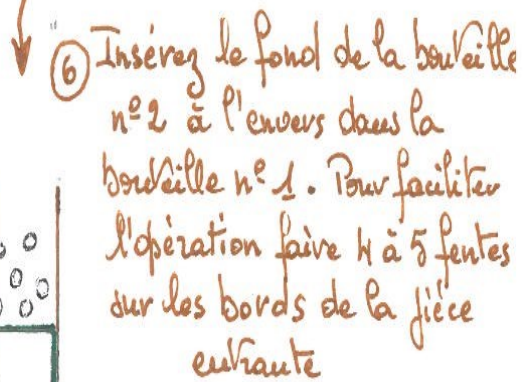 ⑥ Insérez le fond de la bouteille
n° 2 à l'envers dans la
bouteille n° 1. Pour faciliter
l'opération faire 4 à 5 fentes
sur les bords de la pièce
entrante